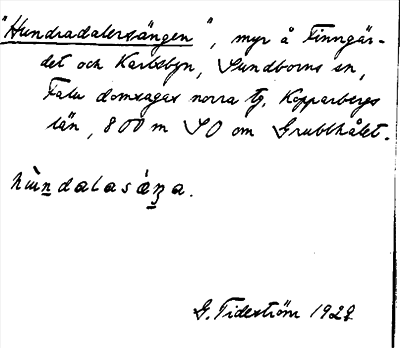 "Hundradalersängen", myr å Finngär-
det och Karlsbyn, Sundborns sn,
Falu domsagas norra tg, Kopparbergs
län, 800 m SO om Grubbhålet.
hùndalasáŋa.
G. Tideström 1928